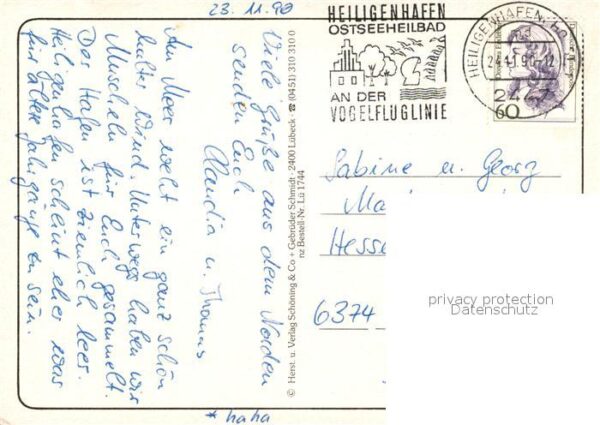 23. 11. 90
Viele Grüße aus dem Norden
senden Euch
Claudia u. Thomas
Am Meer weht ein ganz schön
kalter Wind. Unterwegs haben wir
Muscheln für Euch gesammelt.
Der Hafen ist ziemlich leer.
Heiligenhafen scheint eher was
für ältere Jahrgänge zu sein.
* haha
© Herst. u. Verlag Schöning & Co + Gebrüder Schmidt, 2400 Lübeck · ☎ (0451) 310 310 0
nz Bestell-Nr. Lü 1744
HEILIGENHAFEN
OSTSEEHEILBAD
AN DER
VOGELFLUGLINIE
HEILIGENHAFEN
24.11.90-12
2447
60
Sabine u. Georg
Ma
Hess
6374
privacy protection
Datenschutz